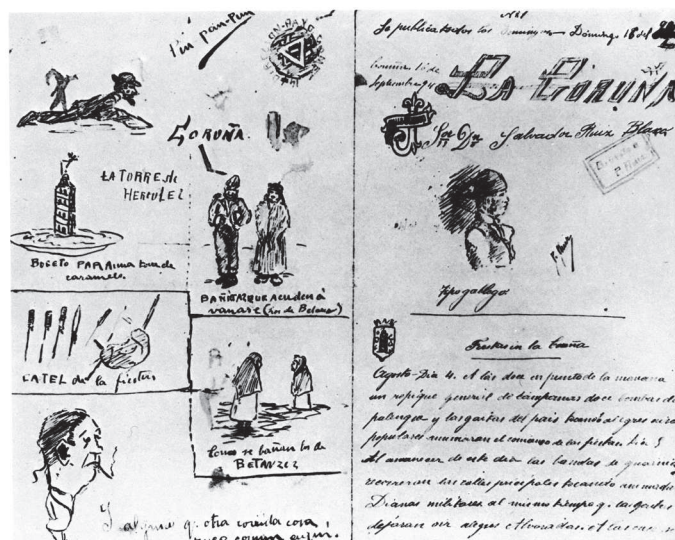 Pin pan-Pun
CORUÑA
LA TORRE de
HERCULEZ
BOCETO PARA una de
caramelo.
BAÑITAS QUE acuden á
vanarse (Los de Betanzos)
CATEL de la fiestas
Como se bañan los de
BETANZEZ
Y alguna q. otra comida cosa,
Se publica todos los Domingos — Domingo 16 del
Coruña 16 de
Septiembre 94
LA CORUÑA
Salvador Ruiz Blasco
P. Ruiz
Tipo gallego
Fiestas en la Coruña
Agosto - Dia 4. A las doce en punto de la mañana
un repique general de campanas doce bombas de
palenque y las gaitas del pais tocando alegres aires
populares anunciaran el comienzo de las fiestas Dia 5
Al amanecer de este dia las bandas de
recorreran las calles principales tocando
Dianas militares al mismo tiempo q. las gaitas
dejaran oir alegres Alvoradas. A las